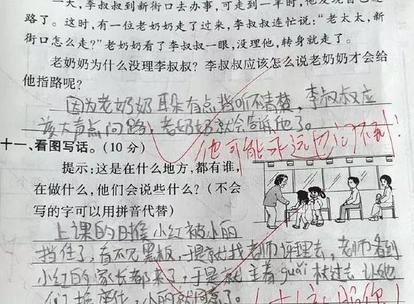 一天，李叔叔到新街口去办事，可走到一半时，他发现自己迷
路了。这时，有一位老奶奶走了过来，李叔叔连忙说："老太太，新
街口怎么走？"老奶奶看了李叔叔一眼，没理他，转身就走了。
老奶奶为什么没理李叔叔？李叔叔应该怎么说老奶奶才会给
他指路呢？
因为老奶奶耳朵有点背听不清楚，李叔叔应
该大声点问路，老奶奶就会告诉他了。
他可能永远也问不到！
十一、看图写话。(10 分)
提示：这是在什么地方，都有谁，
在做什么，他们会说些什么？(不会
写的字可以用拼音代替)
上课的时候小红被小丽
挡住了，看不见黑板，于是就找老师评理去，老师看到
小红的家长都来了，于是就主着 guǎi 林过去，让他
们换座位，小丽就同意了。